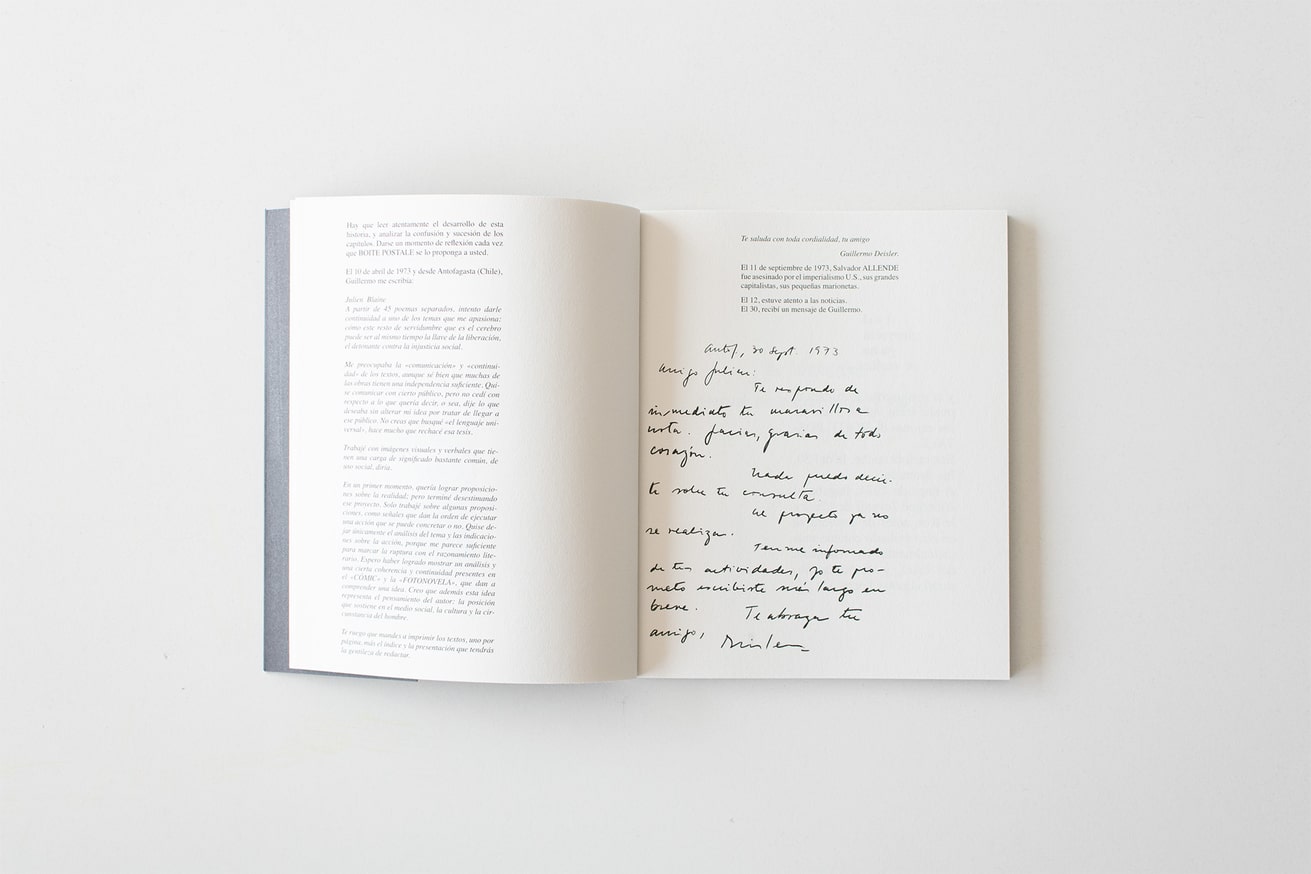 Hay que leer atentamente el desarrollo de esta
historia, y analizar la confusión y sucesión de los
capítulos. Darse un momento de reflexión cada vez
que BOITE POSTALE se lo proponga a usted.
El 10 de abril de 1973 y desde Antofagasta (Chile),
Guillermo me escribía:
Julien Blaine
A partir de 45 poemas separados, intento darle
continuidad a uno de los temas que me apasiona:
cómo este resto de servidumbre que es el cerebro
puede ser al mismo tiempo la llave de la liberación,
el detonante contra la injusticia social.
Me preocupaba la «comunicación» y «continui-
dad» de los textos, aunque sé bien que muchas de
las obras tienen una independencia suficiente. Qui-
se comunicar con cierto público, pero no cedí con
respecto a lo que quería decir, o sea, dije lo que
deseaba sin alterar mi idea por tratar de llegar a
ese público. No creas que busqué «el lenguaje uni-
versal», hace mucho que rechacé esa tesis.
Trabajé con imágenes visuales y verbales que tie-
nen una carga de significado bastante común, de
uso social, diría.
En un primer momento, quería lograr proposicio-
nes sobre la realidad; pero terminé desestimando
ese proyecto. Solo trabajé sobre algunas proposi-
ciones, como señales que dan la orden de ejecutar
una acción que se puede concretar o no. Quise de-
jar únicamente el análisis del tema y las indicacio-
nes sobre la acción, porque me parece suficiente
para marcar la ruptura con el razonamiento lite-
rario. Espero haber logrado mostrar un análisis y
una cierta coherencia y continuidad presentes en
el «COMIC» y la «FOTONOVELA», que dan a
comprender una idea. Creo que además esta idea
representa el pensamiento del autor: la posición
que sostiene en el medio social, la cultura y la cir-
cunstancia del hombre.
Te ruego que mandes a imprimir los textos, uno por
página, más el índice y la presentación que tendrás
la gentileza de redactar.
Te saluda con toda cordialidad, tu amigo
Guillermo Deisler.
El 11 de septiembre de 1973, Salvador ALLENDE
fue asesinado por el imperialismo U.S., sus grandes
capitalistas, sus pequeñas marionetas.
El 12, estuve atento a las noticias.
El 30, recibí un mensaje de Guillermo.
Antof., 30 sept. 1973
Amigo Julien:
Te respondo de
inmediato tu maravillosa
nota. Gracias, gracias de todo
corazón.
Nada puedo decir-
te sobre tu consulta.
El proyecto ya no
se realiza.
Tenme informado
de tus actividades, yo te pro-
meto escribirte más largo en
breve. Te abraza tu
amigo, Deisler